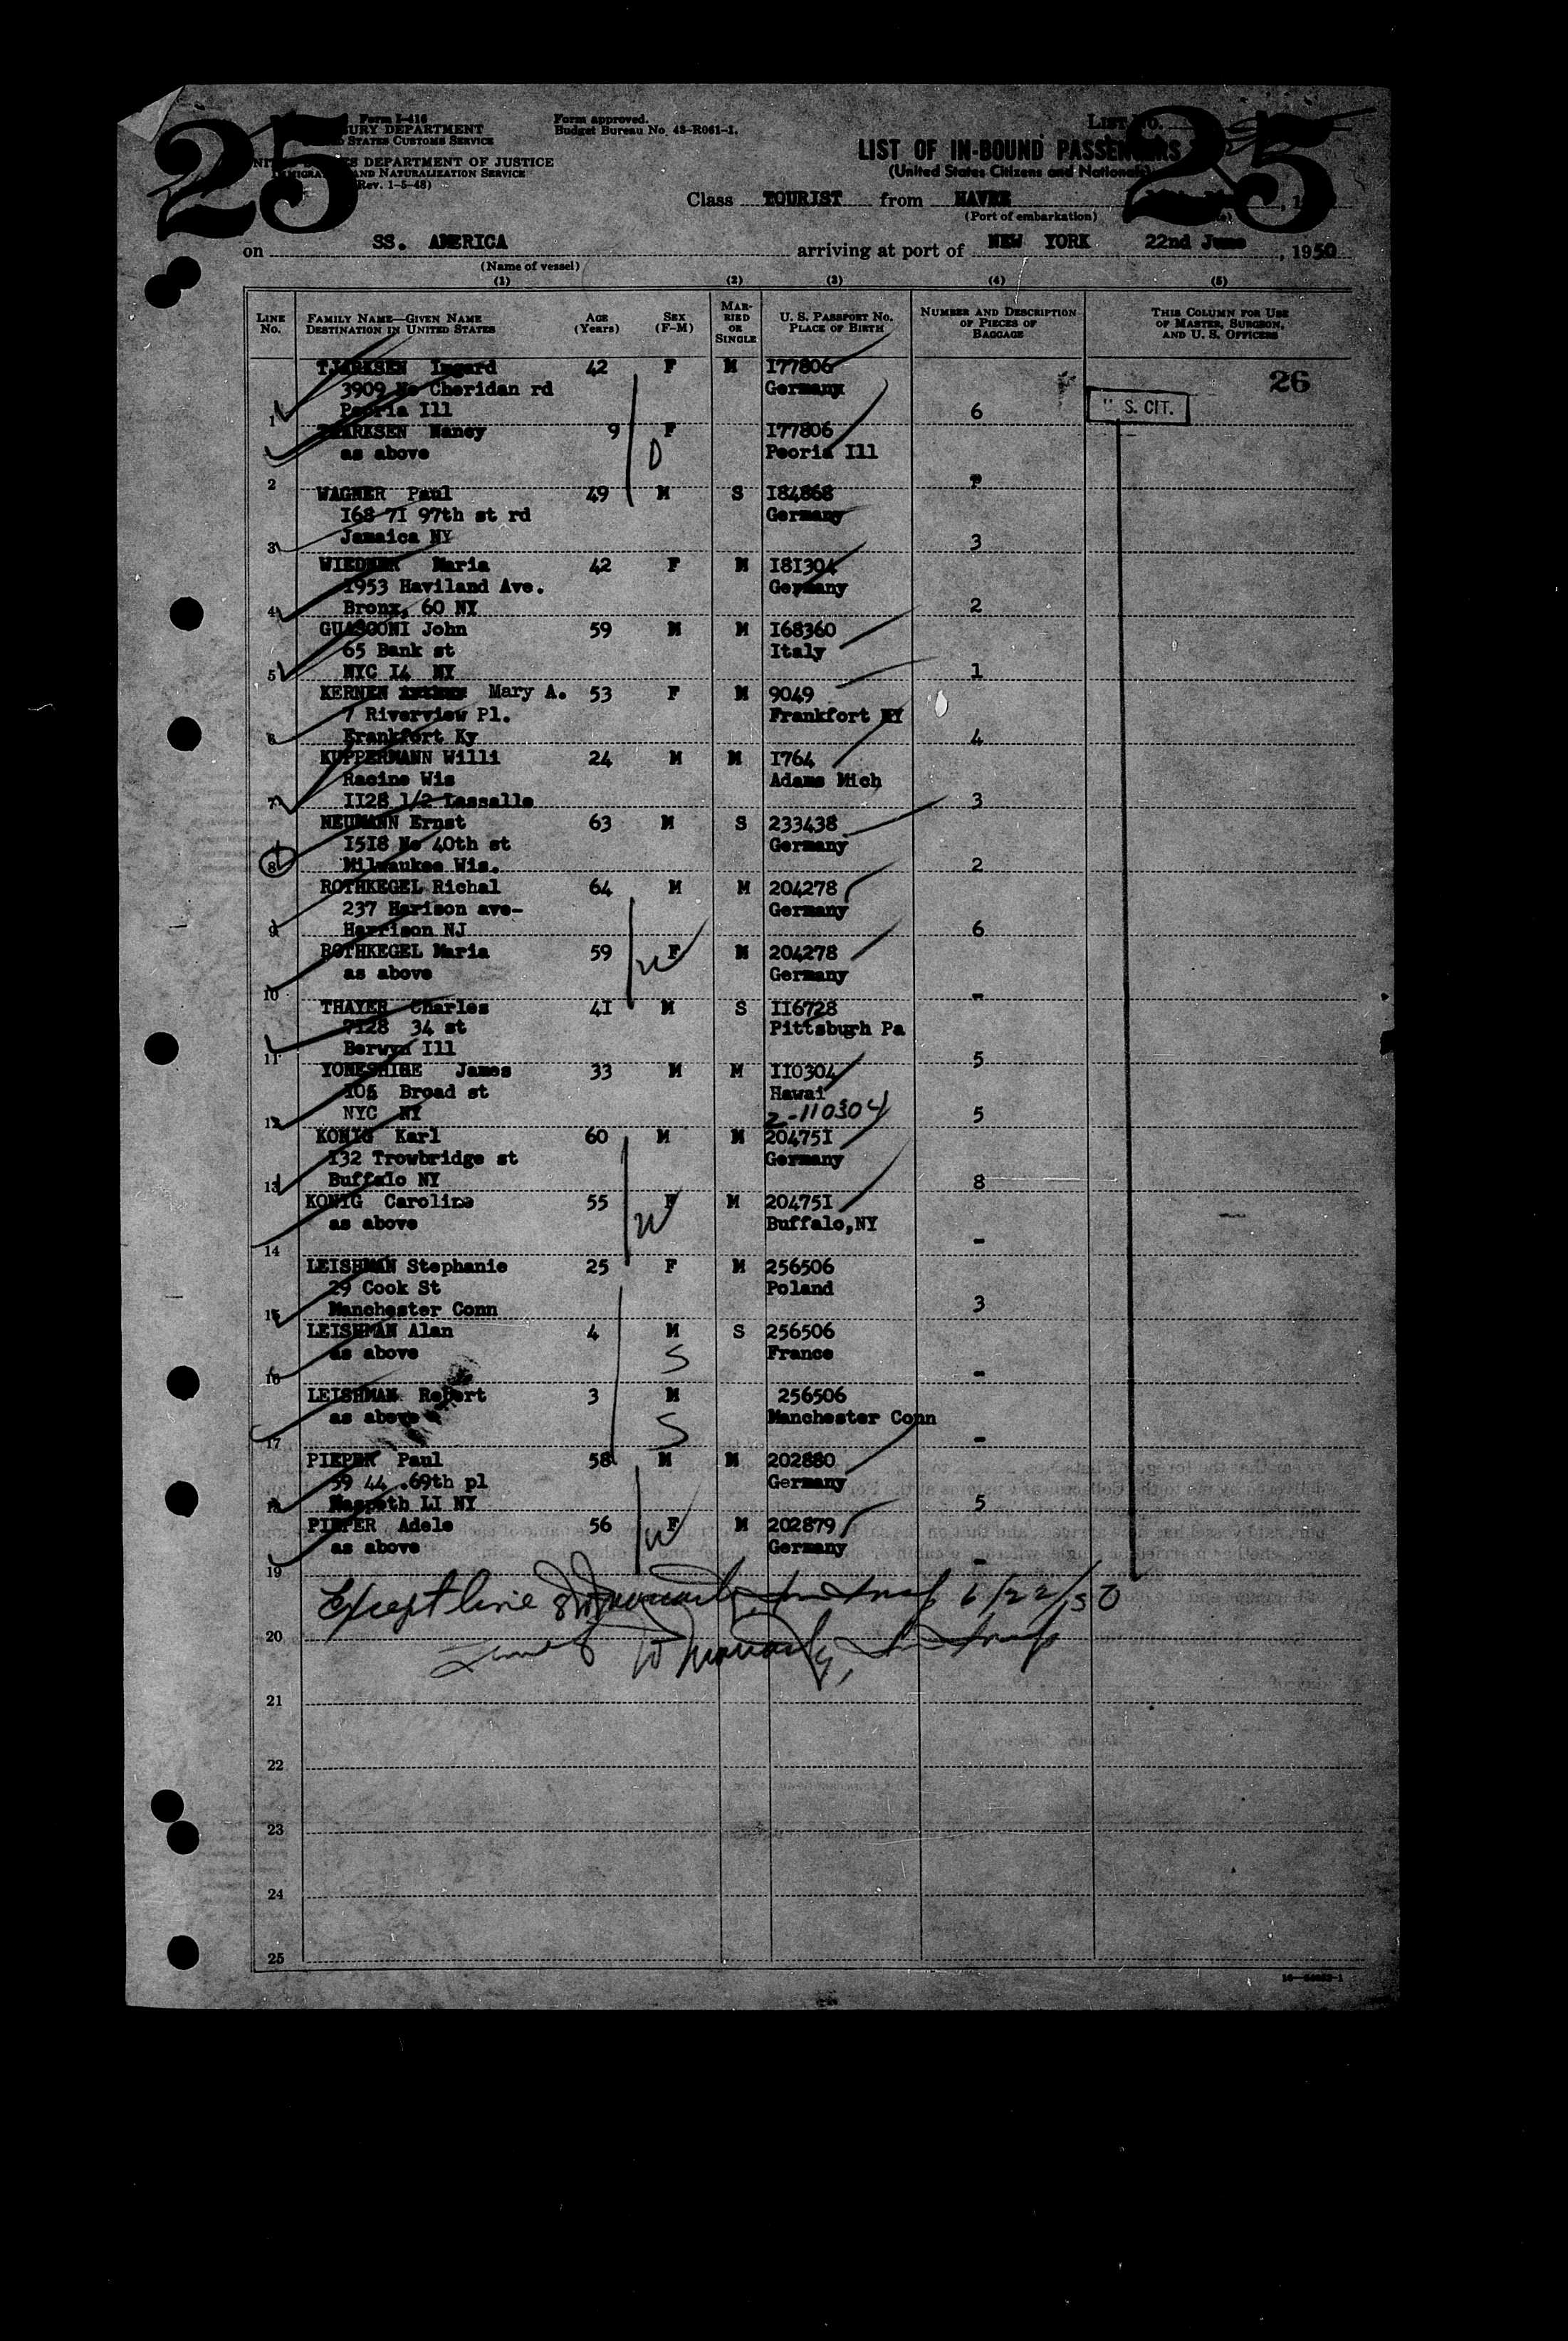 25
25
Form I-416
URY DEPARTMENT
STATES CUSTOMS SERVICE
Form approved.
Budget Bureau No. 43-R061-1.
LIST NO.
S DEPARTMENT OF JUSTICE
AND NATURALIZATION SERVICE
(Rev. 1-5-48)
LIST OF IN-BOUND PASSENGERS
(United States Citizens and Nationals)
Class TOURIST from HAVRE
(Port of embarkation)
on SS. AMERICA arriving at port of NEW YORK 22nd June, 1950
(Name of vessel)
(1) (2) (3) (4) (5)
LINE No. FAMILY NAME—GIVEN NAME DESTINATION IN UNITED STATES AGE (Years) SEX (F-M) MARRIED OR SINGLE U. S. PASSPORT NO. PLACE OF BIRTH NUMBER AND DESCRIPTION OF PIECES OF BAGGAGE THIS COLUMN FOR USE OF MASTER, SURGEON, AND U. S. OFFICERS
TJARKSEN Imgard 42 F M I77806 26
3909 No Cheridan rd Germany
1 Peoria Ill 6 S. CIT.
TJARKSEN Nancy 9 F I77806
as above D Peoria Ill
2
WAGNER Paul 49 M S I84868
I68 7I 97th st rd Germany
3 Jamaica NY 3
WIEDNER Maria 42 F M I8I304
I953 Haviland Ave. Germany
4 Bronx, 60 NY 2
GUASCONI John 59 M M I68360
65 Bank st Italy
5 NYC I4 NY 1
KERNEN Mary A. 53 F M 9049
7 Riverview Pl. Frankfort KY
6 Frankfort Ky 4
KUPPERMANN Willi 24 M M I764
Racine Wis Adams Mich
7 II28 1/2 Lassalle 3
NEUMANN Ernst 63 M S 233438
I5I8 No 40th st Germany
8 Milwaukee Wis. 2
ROTHKEGEL Richal 64 M M 204278
237 Harison ave- Germany
9 Harrison NJ 6
ROTHKEGEL Maria 59 F M 204278
as above W Germany
10 -
THAYER Charles 4I M S II6728
7I28 34 st Pittsburgh Pa
11 Berwyn Ill 5
YORKSHIRE James 33 M M II0304
I05 Broad st Hawai
12 NYC NY 2-110304 5
KONIG Karl 60 M M 20475I
I32 Trowbridge st Germany
13 Buffalo NY 8
KONIG Caroline 55 F M 20475I
as above W Buffalo,NY
14 -
LEISHMAN Stephanie 25 F M 256506
29 Cook St Poland
15 Manchester Conn 3
LEISHMAN Alan 4 M S 256506
as above S France
16 -
LEISHMAN Robert 3 M 256506
as above S Manchester Conn
17 -
PIEPER Paul 58 M M 202880
59 44 .69th pl Germany
18 Maspeth LI NY 5
PIEPER Adele 56 F M 202879
as above W Germany
19 -
Except line 8 6/22/50
20
21
22
23
24
25